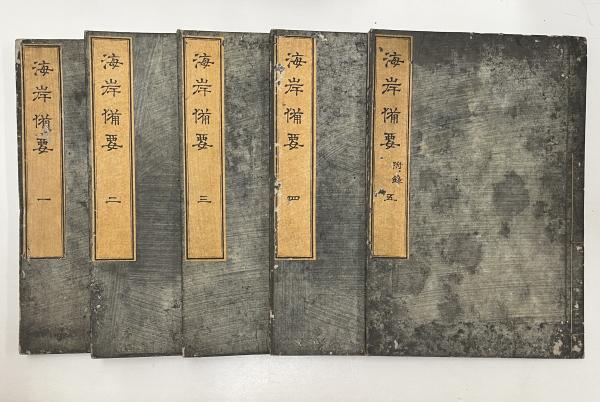 海岸備要 一
海岸備要 二
海岸備要 三
海岸備要 四
海岸備要 附錄 五